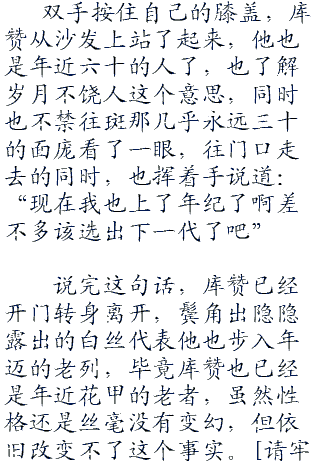 双手按住自己的膝盖，库
赞从沙发上站了起来，他也
是年近六十的人了，也了解
岁月不饶人这个意思，同时
也不禁往斑那几乎永远三十
的面庞看了一眼，往门口走
去的同时，也挥着手说道：
“现在我也上了年纪了啊差
不多该选出下一代了吧”
说完这句话，库赞已经
开门转身离开，鬓角出隐隐
露出的白丝代表他也步入年
迈的老列，毕竟库赞也已经
是年近花甲的老者，虽然性
格还是丝毫没有变幻，但依
旧改变不了这个事实。[请牢